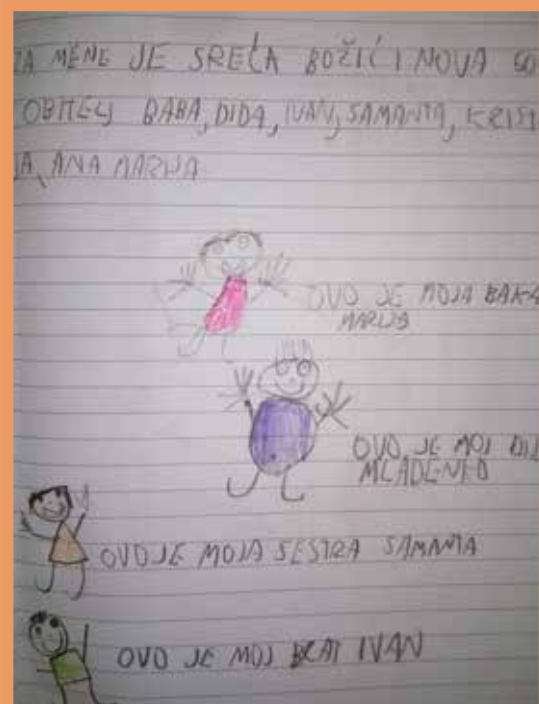 ZA MENE JE SREĆA BOŽIĆ I NOVA GO
OBITELJ BABA, DIDA, IVAN, SAMANTA, KRISTI
JA, ANA MARIJA
OVO JE MOJA BAKA
MARIJA
OVO JE MOJ DID
MLADENKO
OVO JE MOJA SESTRA SAMANTA
OVO JE MOJ BRAT IVAN